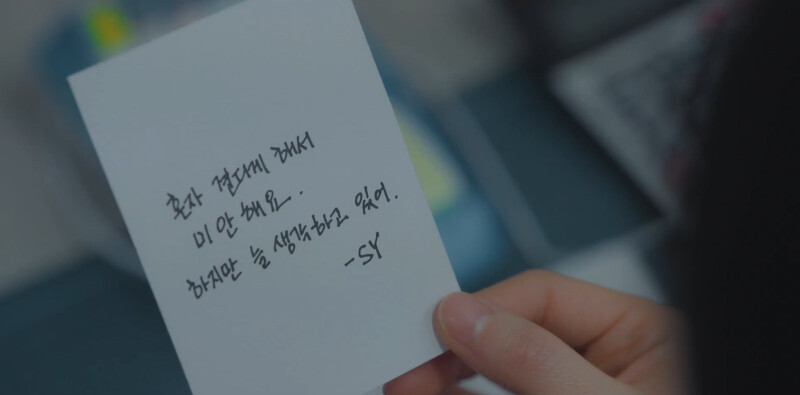 혼자 견디게 해서
미안해요.
하지만 늘 생각하고 있어.
-SY